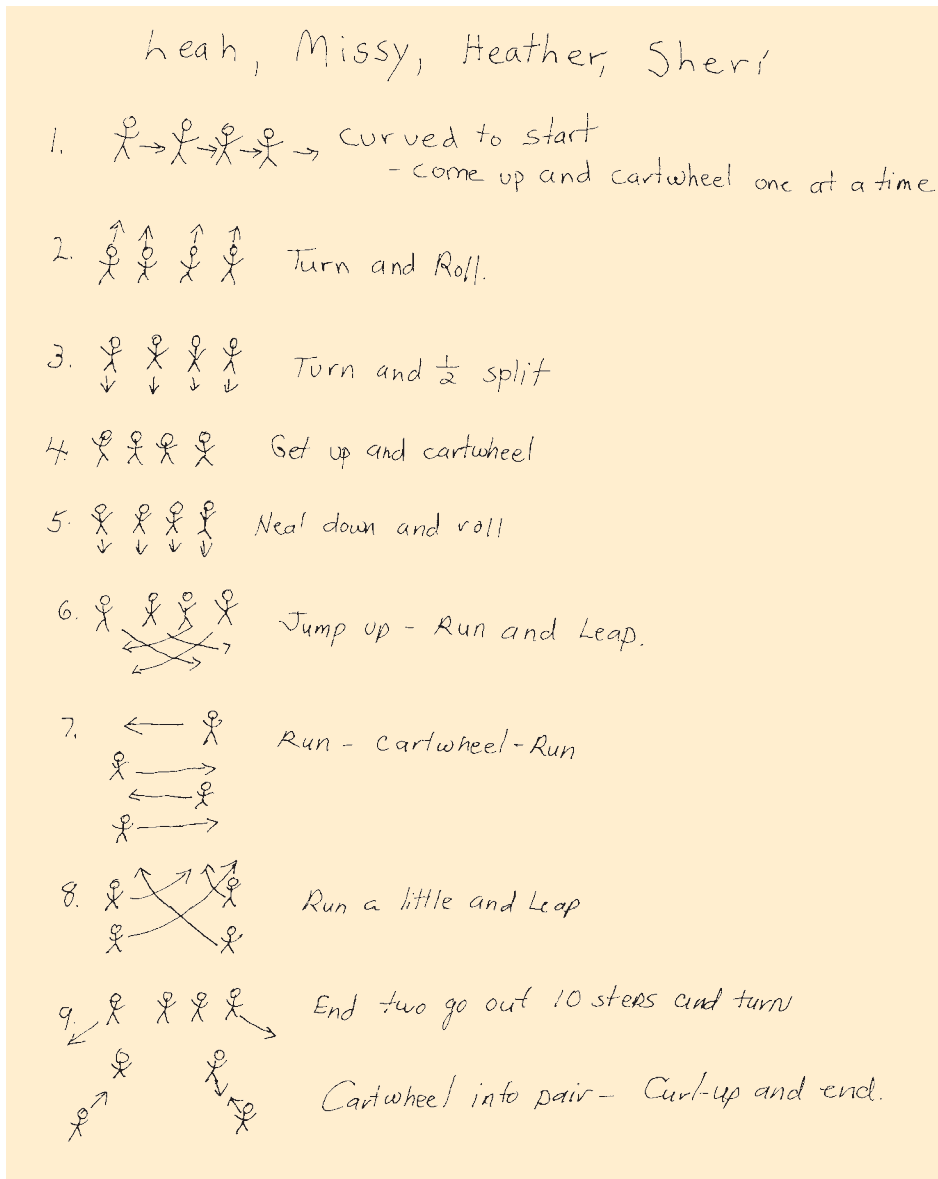 Leah, Missy, Heather, Sheri
1. curved to start
- come up and cartwheel one at a time
2. Turn and Roll.
3. Turn and 1/2 split
4. Get up and cartwheel
5. Neal down and roll
6. Jump up - Run and Leap.
7. Run - Cartwheel - Run
8. Run a little and Leap
9. End two go out 10 steps and turn
Cartwheel into pair - Curl-up and end.